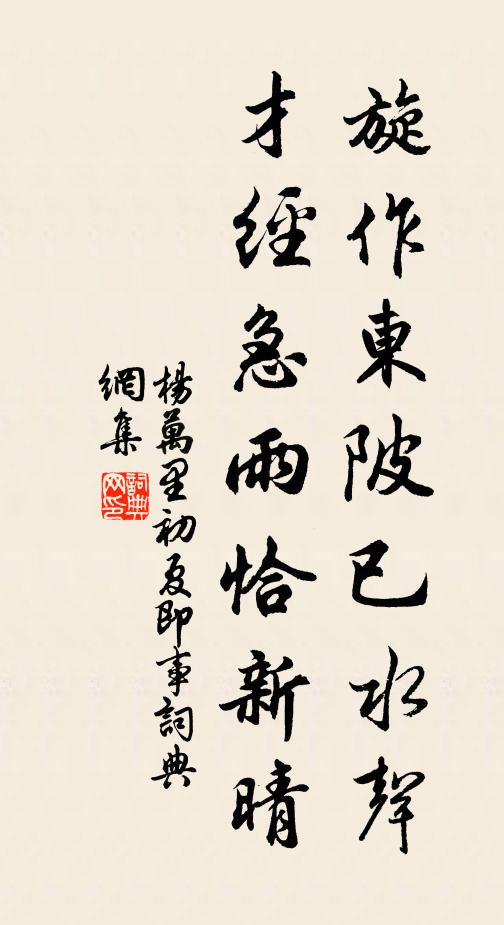 旋作東陂已水聲
才經急雨恰新晴
楊萬里初夏即事詞典
網集
詞典
网印